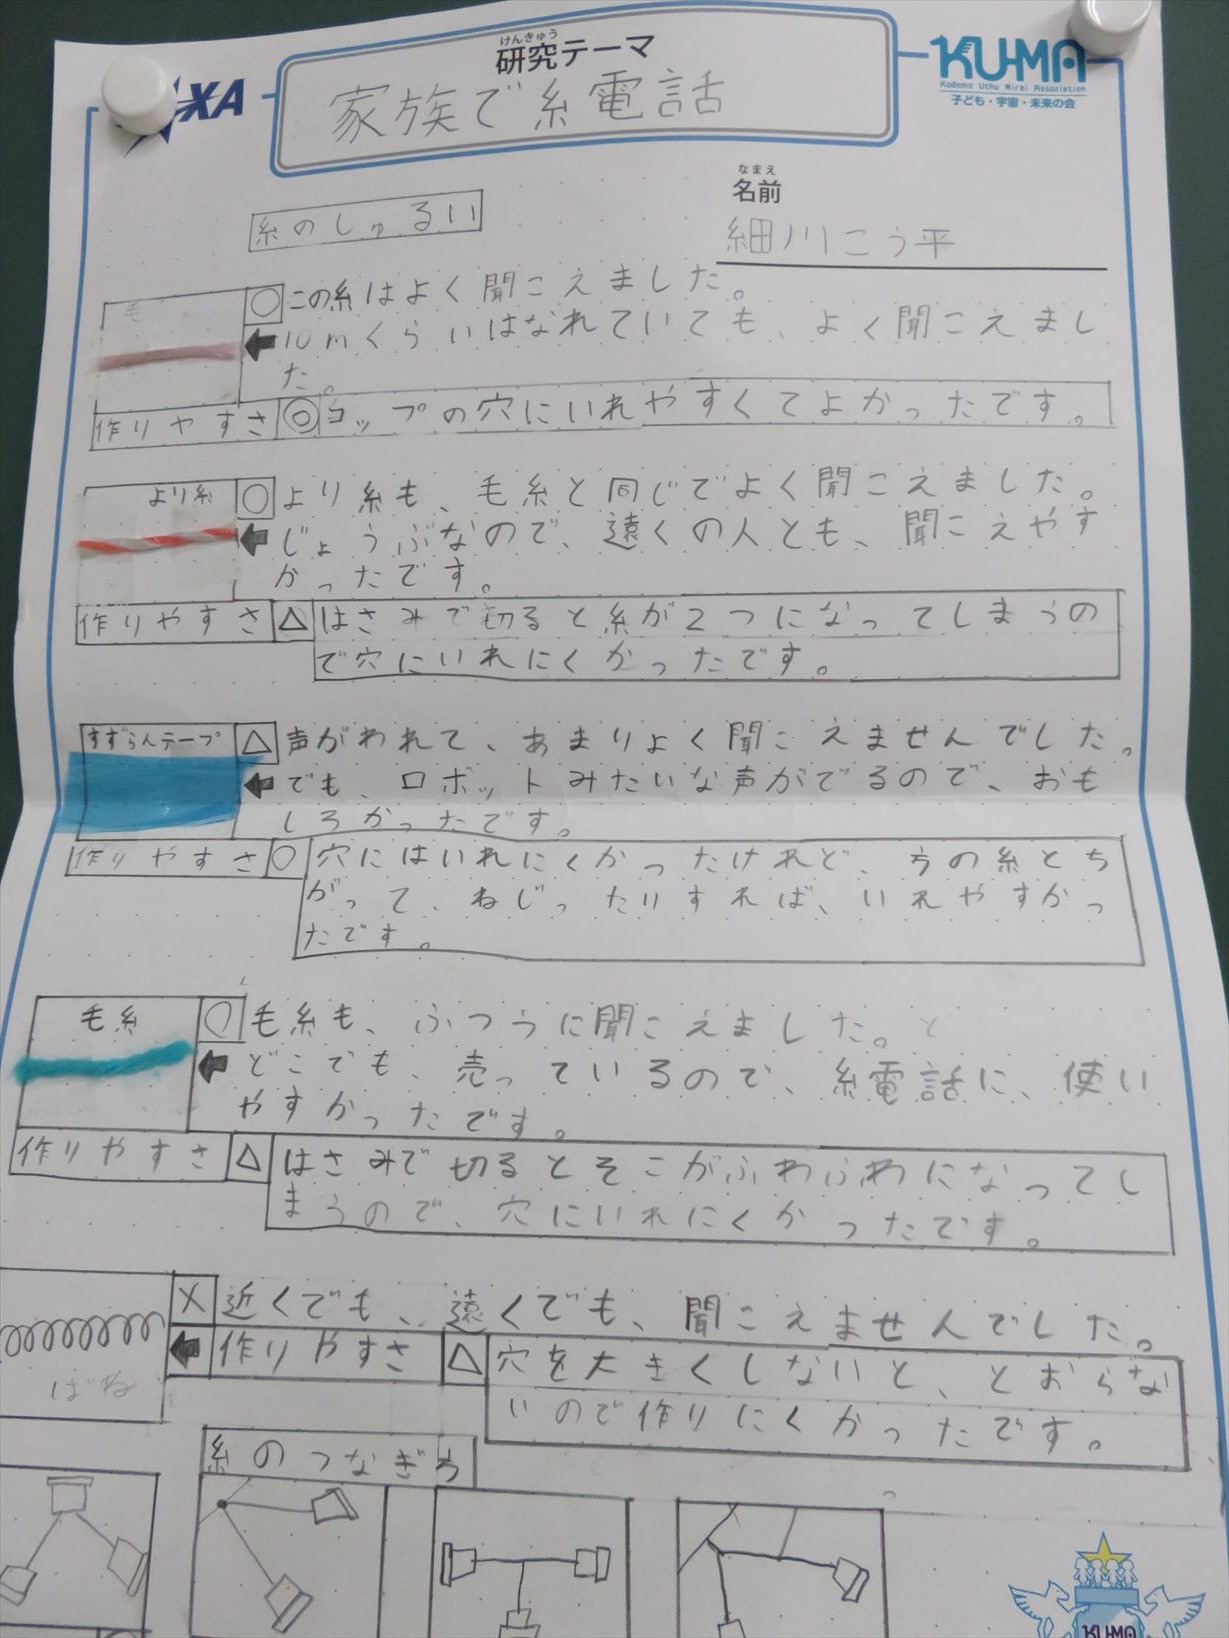 けんきゅう
研究テーマ
家族で糸電話
XA
KU-MA
Kodomo Uchu Mirai Association
子ども・宇宙・未来の会
なまえ
名前
細川こう平
糸のしゅるい
毛
○ この糸はよく聞こえました。
10mくらいはなれていても、よく聞こえまし
た。
作りやすさ ◎ コップの穴にいれやすくてよかったです。
より糸 ○ より糸も、毛糸と同じでよく聞こえました。
じょうぶなので、遠くの人とも、聞こえやす
かったです。
作りやすさ △ はさみで切ると糸が2つになってしまうの
で穴にいれにくかったです。
すずらんテープ △ 声がわれて、あまりよく聞こえませんでした。
でも、ロボットみたいな声がでるので、おも
しろかったです。
作りやすさ ○ 穴にはいれにくかったけれど、うの糸とち
がって、ねじったりすれば、いれやすかっ
たです。
毛糸 ○ 毛糸も、ふつうに聞こえました。と
どこでも、売っているので、糸電話に、使い
やすかったです。
作りやすさ △ はさみで切るとそこがふわふわになってし
まうので、穴にいれにくかったです。
× 近くでも、遠くでも、聞こえませんでした。
ばね
作りやすさ △ 穴を大きくしないと、とおらな
いので作りにくかったです。
糸のつなぎ方
KU-MA